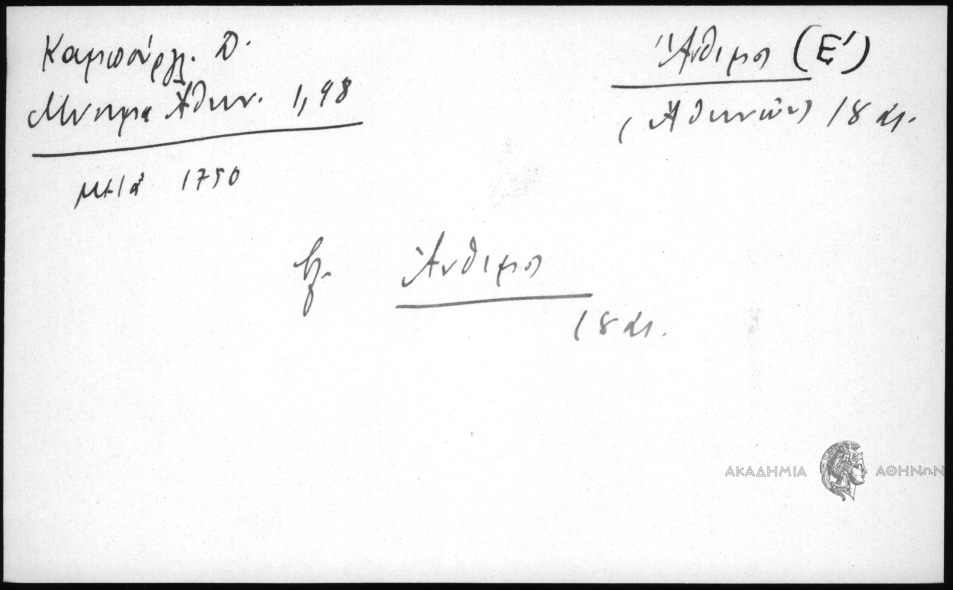 Καμπούργλ. Δ.
Μνημεία Ἀθην. 1,98
μετά 1750
Ἄνθιμος (Ε')
(Ἀθηνῶν) 18 αι.
βλ. Ἄνθιμος
18 αι.
ΑΚΑΔΗΜΙΑ ΑΘΗΝΩΝ